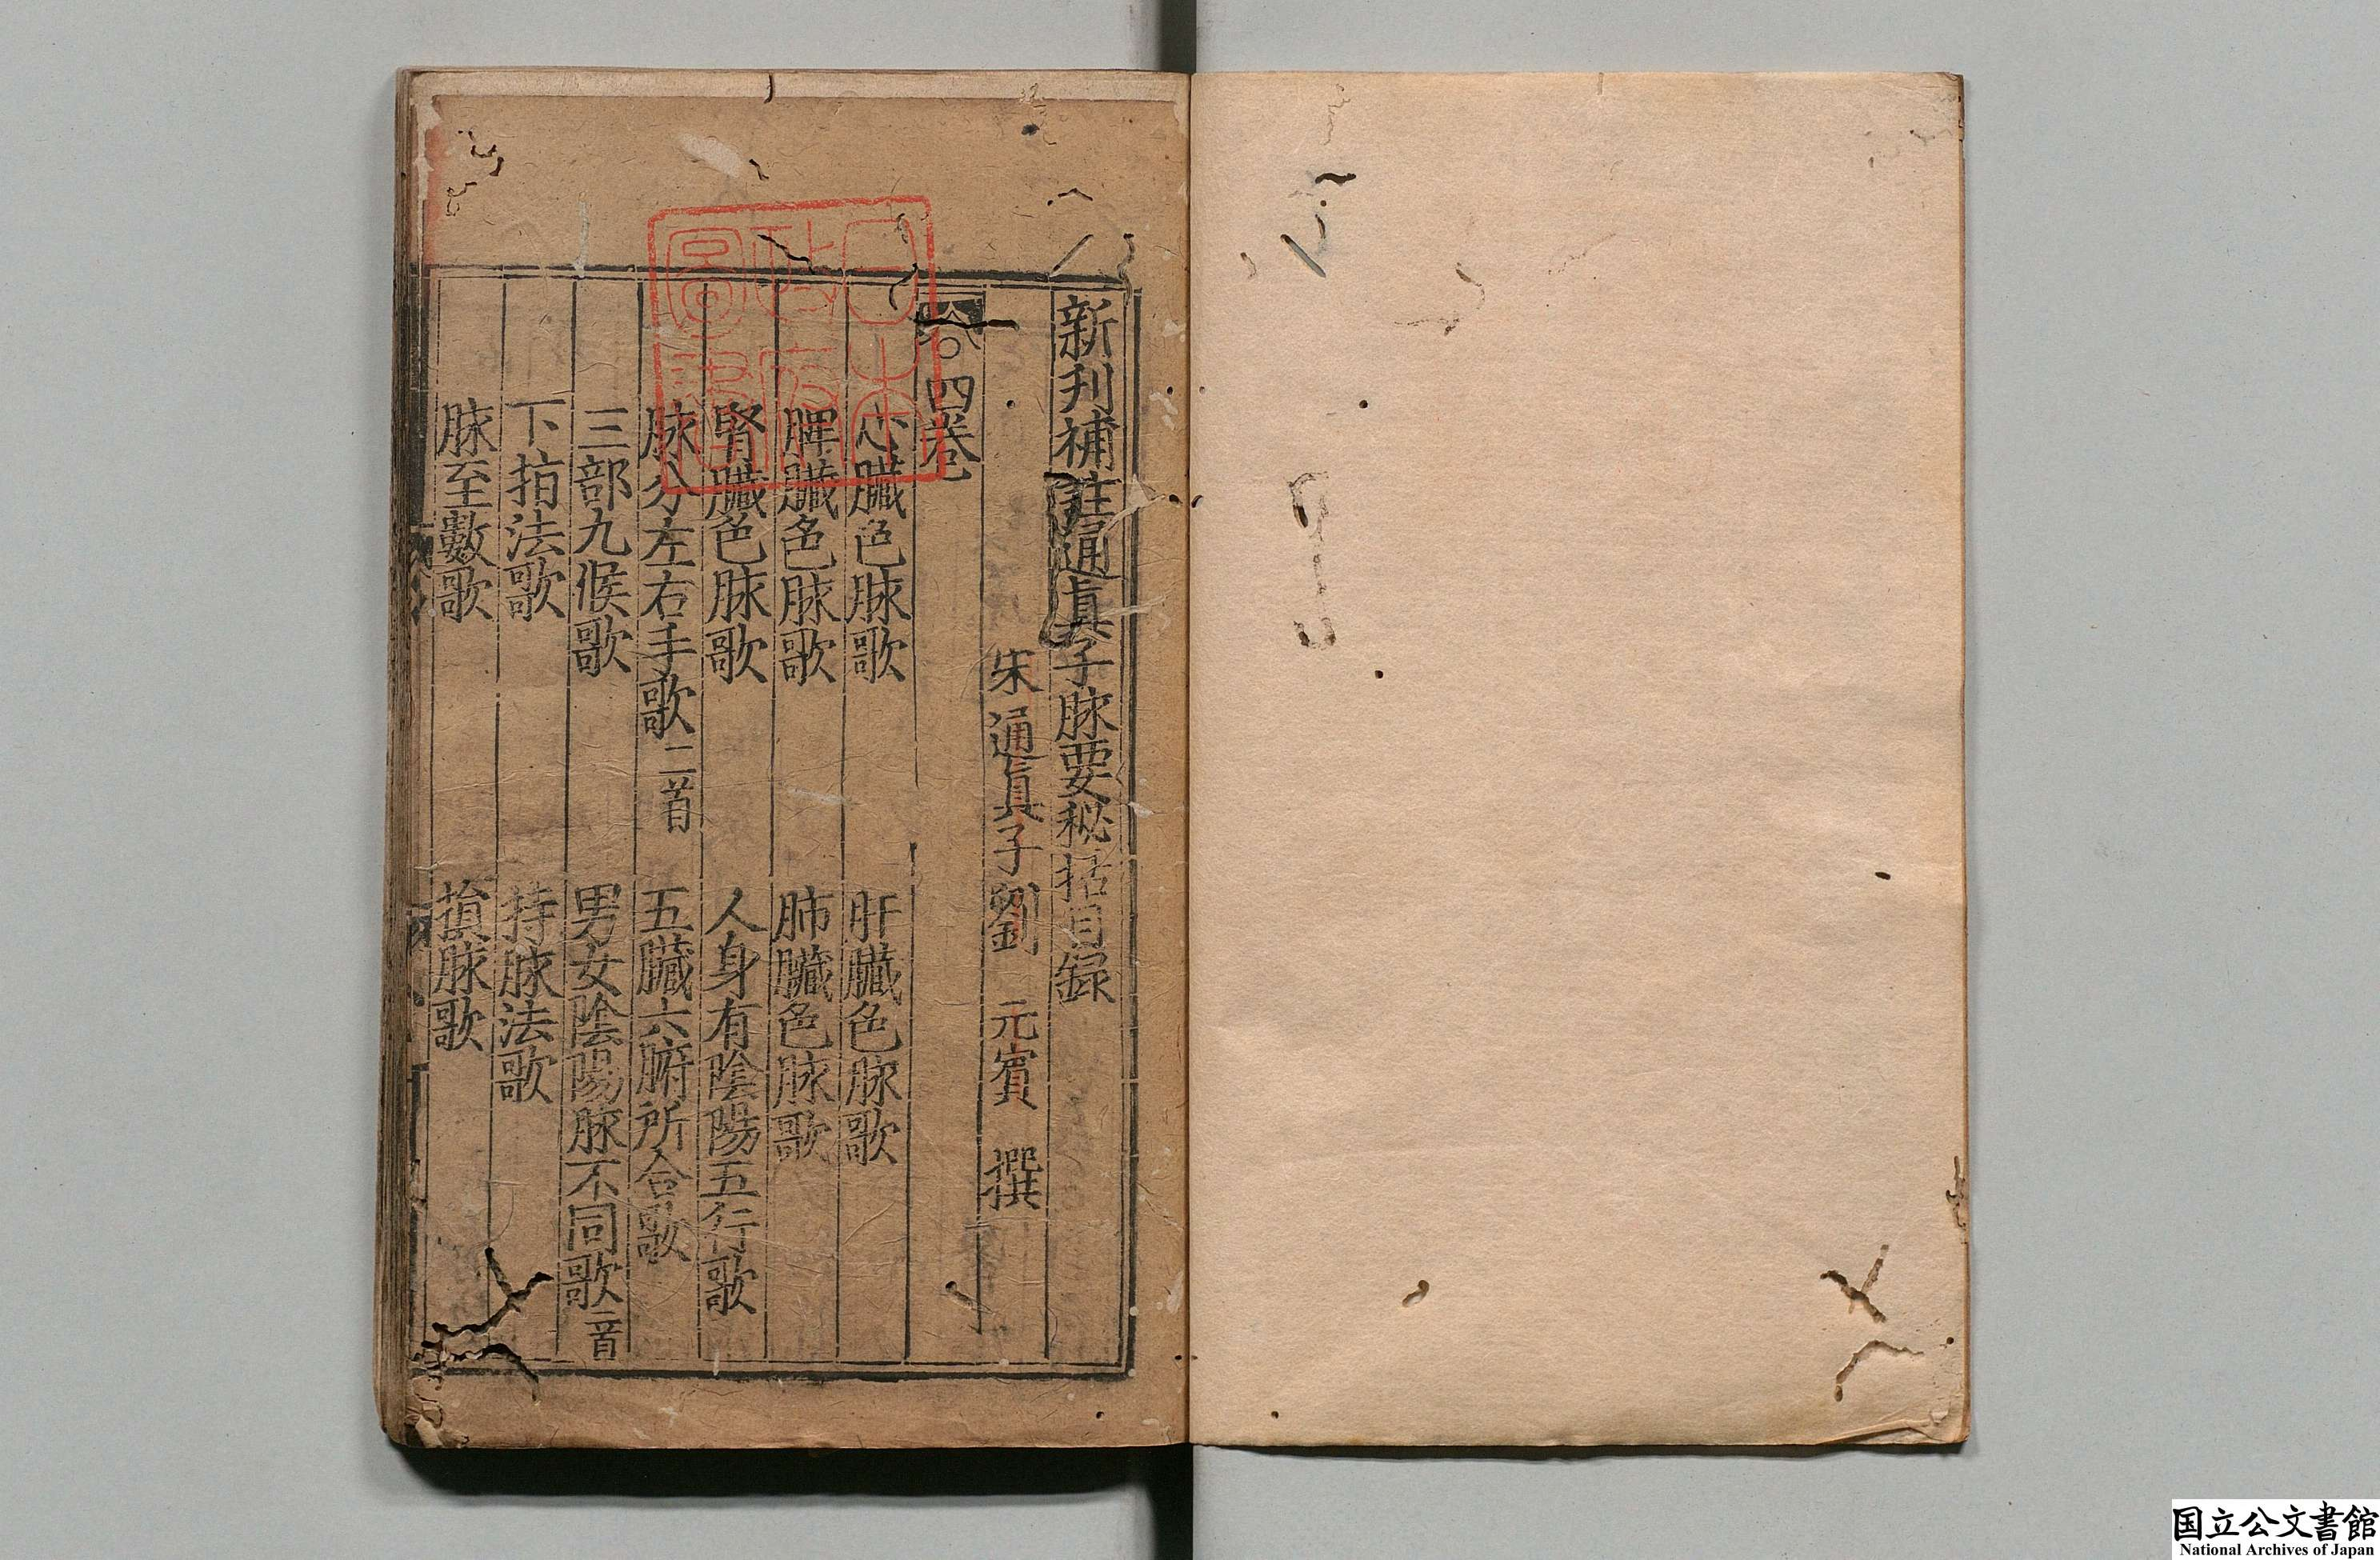 新刋補註通眞子脉要秘括目録
宋 通眞子劉 元賓 撰
四卷
心臟色脉歌 肝臟色脉歌
脾臟色脉歌 肺臟色脉歌
腎臟色脉歌 人身有陰陽五行歌
脉分左右手歌二首 五臟六腑所合歌
三部九候歌 男女陰陽脉不同歌二首
下指法歌 持脉法歌
脉至數歌 損脉歌
日本
政府
圖書
国立公文書館
National Archives of Japan